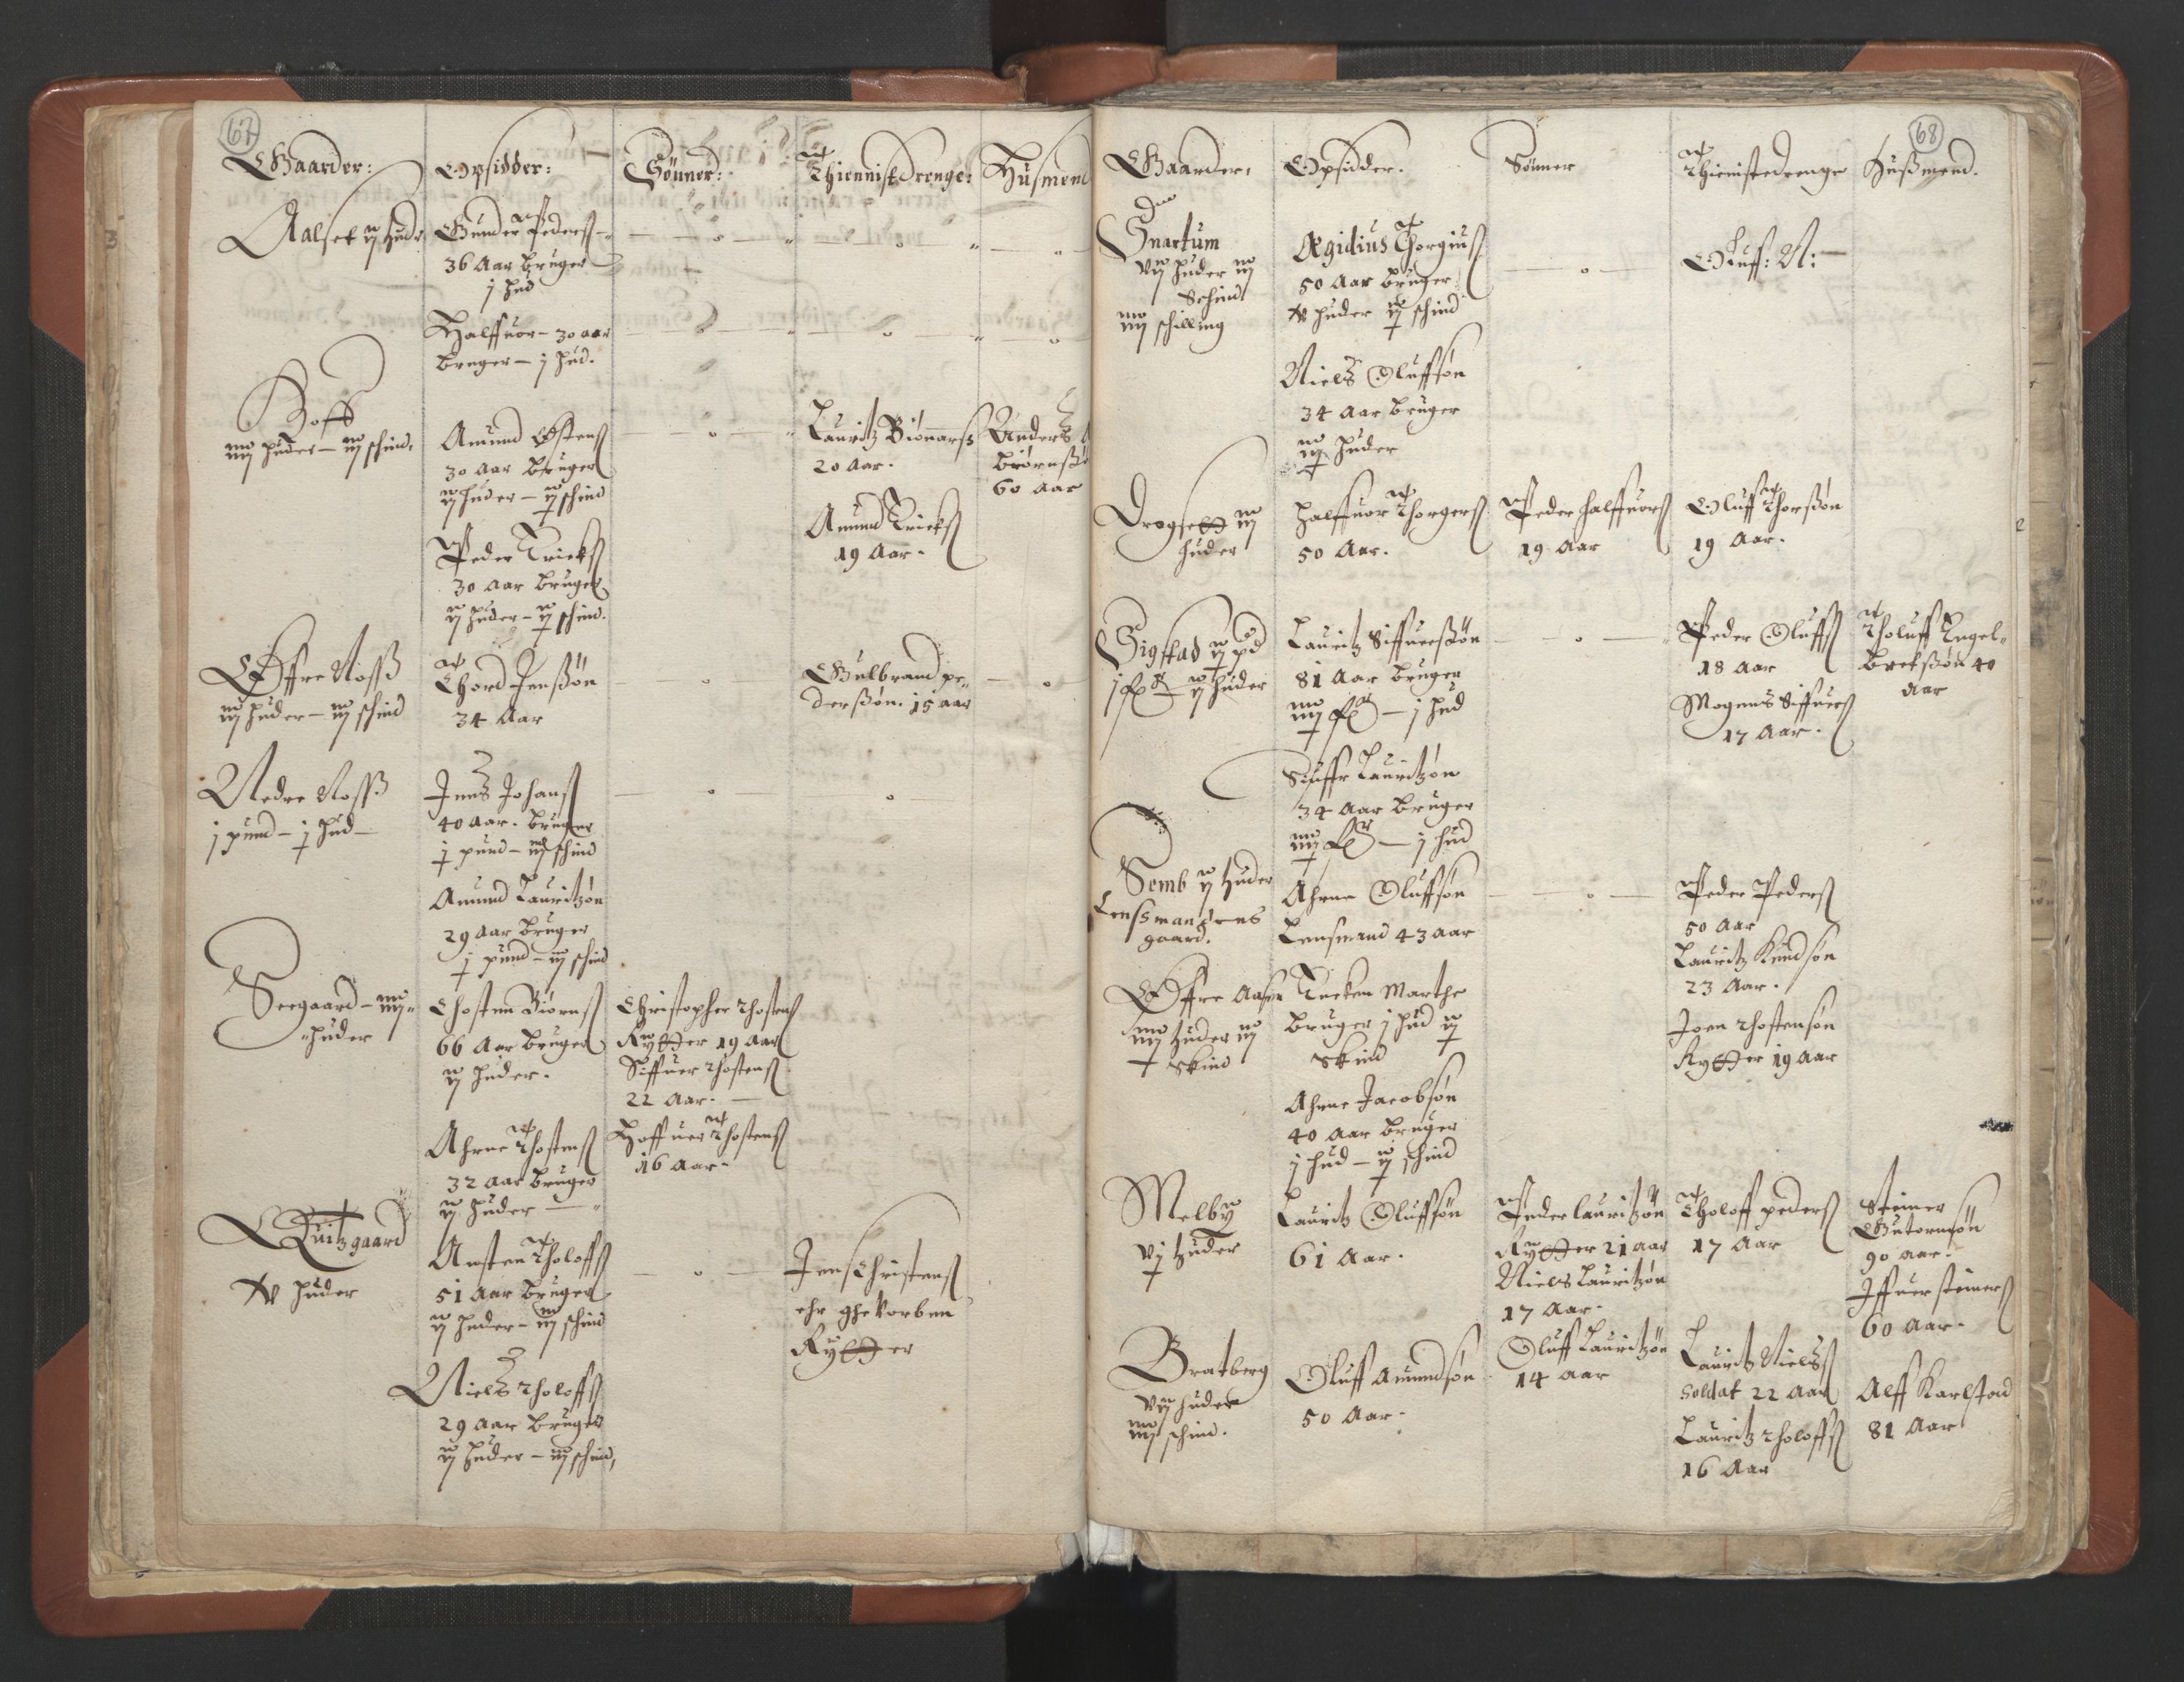 67
Gaarder:
Opsidder:
Sönner:
Thienniste Drenge:
Husmend
Aalset ij hudr
Gunder Peders
36 Aar Bruger
j hud
Halffuor - 30 aar
bruger - j hud.
Hoff
iiij huder - iij schind,
Amund Østens
30 Aar Bruger
ij huder - ij schind
Lauritz Biönnerss
20 Aar.
Anders
Biörnss
60 aar
Peder Erickss
30 aar bruger
ij huder - ij schin.
Amund Erickss
19 Aar.
Øffre Noss
iij huder - iij schind
Thord Jenssön
34 Aar
Gulbrand pe-
derssön. 15 aar
Nedre Noss
j pund - j hud
Jens Johanss
40 aar. bruger
j pund - iij schind
Amund Lauritzön
29 aar bruger
j pund - iij schind
Seegaard - iiij
huder
Thosten Biörnss
66 Aar bruger
ij huder.
Christopher Thostenss
Rytter 19 aar
Siffuer Thostenss
22 Aar.
Ahrne Thostenss
32 aar bruger
ij huder
Hoffuer Thostenss
16 aar.
Quitzgaard
huder
Austen Tholoffss
51 aar bruger
ij huder - iij schind
Jens Christenss
ehr ghevorben
Rytter
Niels Tholoffss
29 aar bruger
ij huder - iij schind,
68
Gaarder,
Opsidder.
Sönner
Thienistedrenge
Hussmend.
Snartum
vij huder iij
Schind
iiij schilling
Ægidius Thorgiuss
50 aar bruger
huder ij schind
Oluff: N:
Niels Oluffsön
34 aar bruger
iij huder
Drogsett iij
huder
Halffuor Thorgerss
50 Aar.
Peder Halffuorss
19 Aar
Oluff Thorssön
19 Aar.
Sigstad ij pd
ij huder
Lauritz Siffuerssön
81 Aar bruger
iiij - j hud
Peder Oluffss
18 aar
Mogens Siffuerss
17 Aar.
Tholuff Engel-
bretssön 40
aar
Siuffr Lauritzön
34 aar bruger
iiij - j hud
Semb ij huder
Lenssmandens
gaard.
Ahrne Oluffsön
Lensmand 43 aar
Peder Pederss
50 aar
Lauritz Knudsön
23 Aar.
Øffre Aasen
iiij huder iij
Skind
Encken Marthe
bruger j hud ij
Skind
Joen Thostensön
Rytter 19 aar
Ahrne Jacobsön
40 aar bruger
j hud - ij schind
Melby
vj huder
Lauritz Oluffsön
61 Aar.
Peder Lauritzön
Rytter 21 aar
Niels Lauritzön
17 Aar.
Oluff Lauritzön
14 aar
Tholoff Pederss
17 Aar
Steiner
Gutormsön
90 aar.
Iffuer Steinerss
60 aar.
Bratberg
vij huder
iiij schind.
Oluff Amundsön
50 Aar.
Lauritz Nielss
Soldat 22 aar
Lauritz Tholoffss
16 Aar
Alff Karlstad
81 Aar